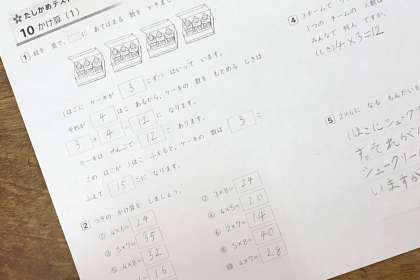 たしかめテスト
10 かけ算 (1)
1 絵を 見て、□に あてはまる 数を かきましょう
1はこに ケーキが 3 こずつ はいって います。
それが 4 はこ あるから、ケーキの 数を もとめる しきは
3 × 4 = 12 に なります。
ケーキは ぜんぶで 12 こ あります。
この はこが 1はこ ふえると、ケーキの 数は 3 こ
ふえて 15 こに なります。
2 つぎの かけ算を しましょう。
4×6= 24
5×7= 35
4×8= 32
16
3×8= 24
4×5= 20
2×7= 14
5×8= 40
4×7= 28
4 3チームで
1つの チームの 人数は
みんなで 何人 ですか。
(しき) 4×3=12
5 2×4に なる もんだいを
1はこにシューク
す。それが
シュークリー
いますか